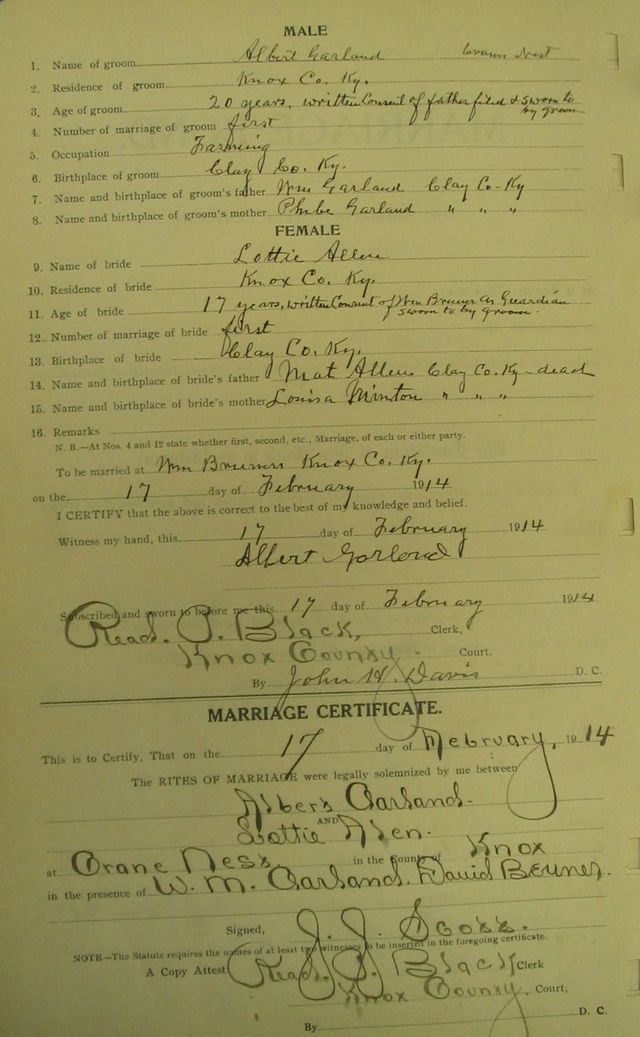 MALE
1. Name of groom Albert Garland Crain Nest
2. Residence of groom Knox Co. Ky.
3. Age of groom 20 years, written Consent of father filed & sworn to by groom
4. Number of marriage of groom first
5. Occupation Farming
6. Birthplace of groom Clay Co. Ky.
7. Name and birthplace of groom's father Wm Garland Clay Co. Ky
8. Name and birthplace of groom's mother Phebe Garland " " "
FEMALE
9. Name of bride Lottie Allen
10. Residence of bride Knox Co. Ky.
11. Age of bride 17 years, written Consent of Wm Bruner as Guardian sworn to by groom.
12. Number of marriage of bride first
13. Birthplace of bride Clay Co. Ky.
14. Name and birthplace of bride's father Mat Allen Clay Co. Ky - dead
15. Name and birthplace of bride's mother Louisa Minton " " "
16. Remarks
N. B.—At Nos. 4 and 12 state whether first, second, etc., Marriage, of each or either party.
To be married at Wm Bruners Knox Co. Ky.
on the 17 day of February 1914
I CERTIFY that the above is correct to the best of my knowledge and belief.
Witness my hand, this 17 day of February 1914
Albert Garland
Subscribed and sworn to before me this 17 day of February 1914
Read. P. Black, Clerk,
Knox County. Court.
By John H. Davis D. C.
MARRIAGE CERTIFICATE.
This is to Certify, That on the 17 day of February, 1914
The RITES OF MARRIAGE were legally solemnized by me between
Albert Garland.
AND
Lottie Allen.
at Crane Nest in the County of Knox
in the presence of W. M. Garland. David Bruner.
Signed, J. J. Scott.
NOTE—The Statute requires the names of at least two witnesses to be inserted in the foregoing certificate.
A Copy Attest Read. P. Black Clerk
Knox County. Court,
By D. C.